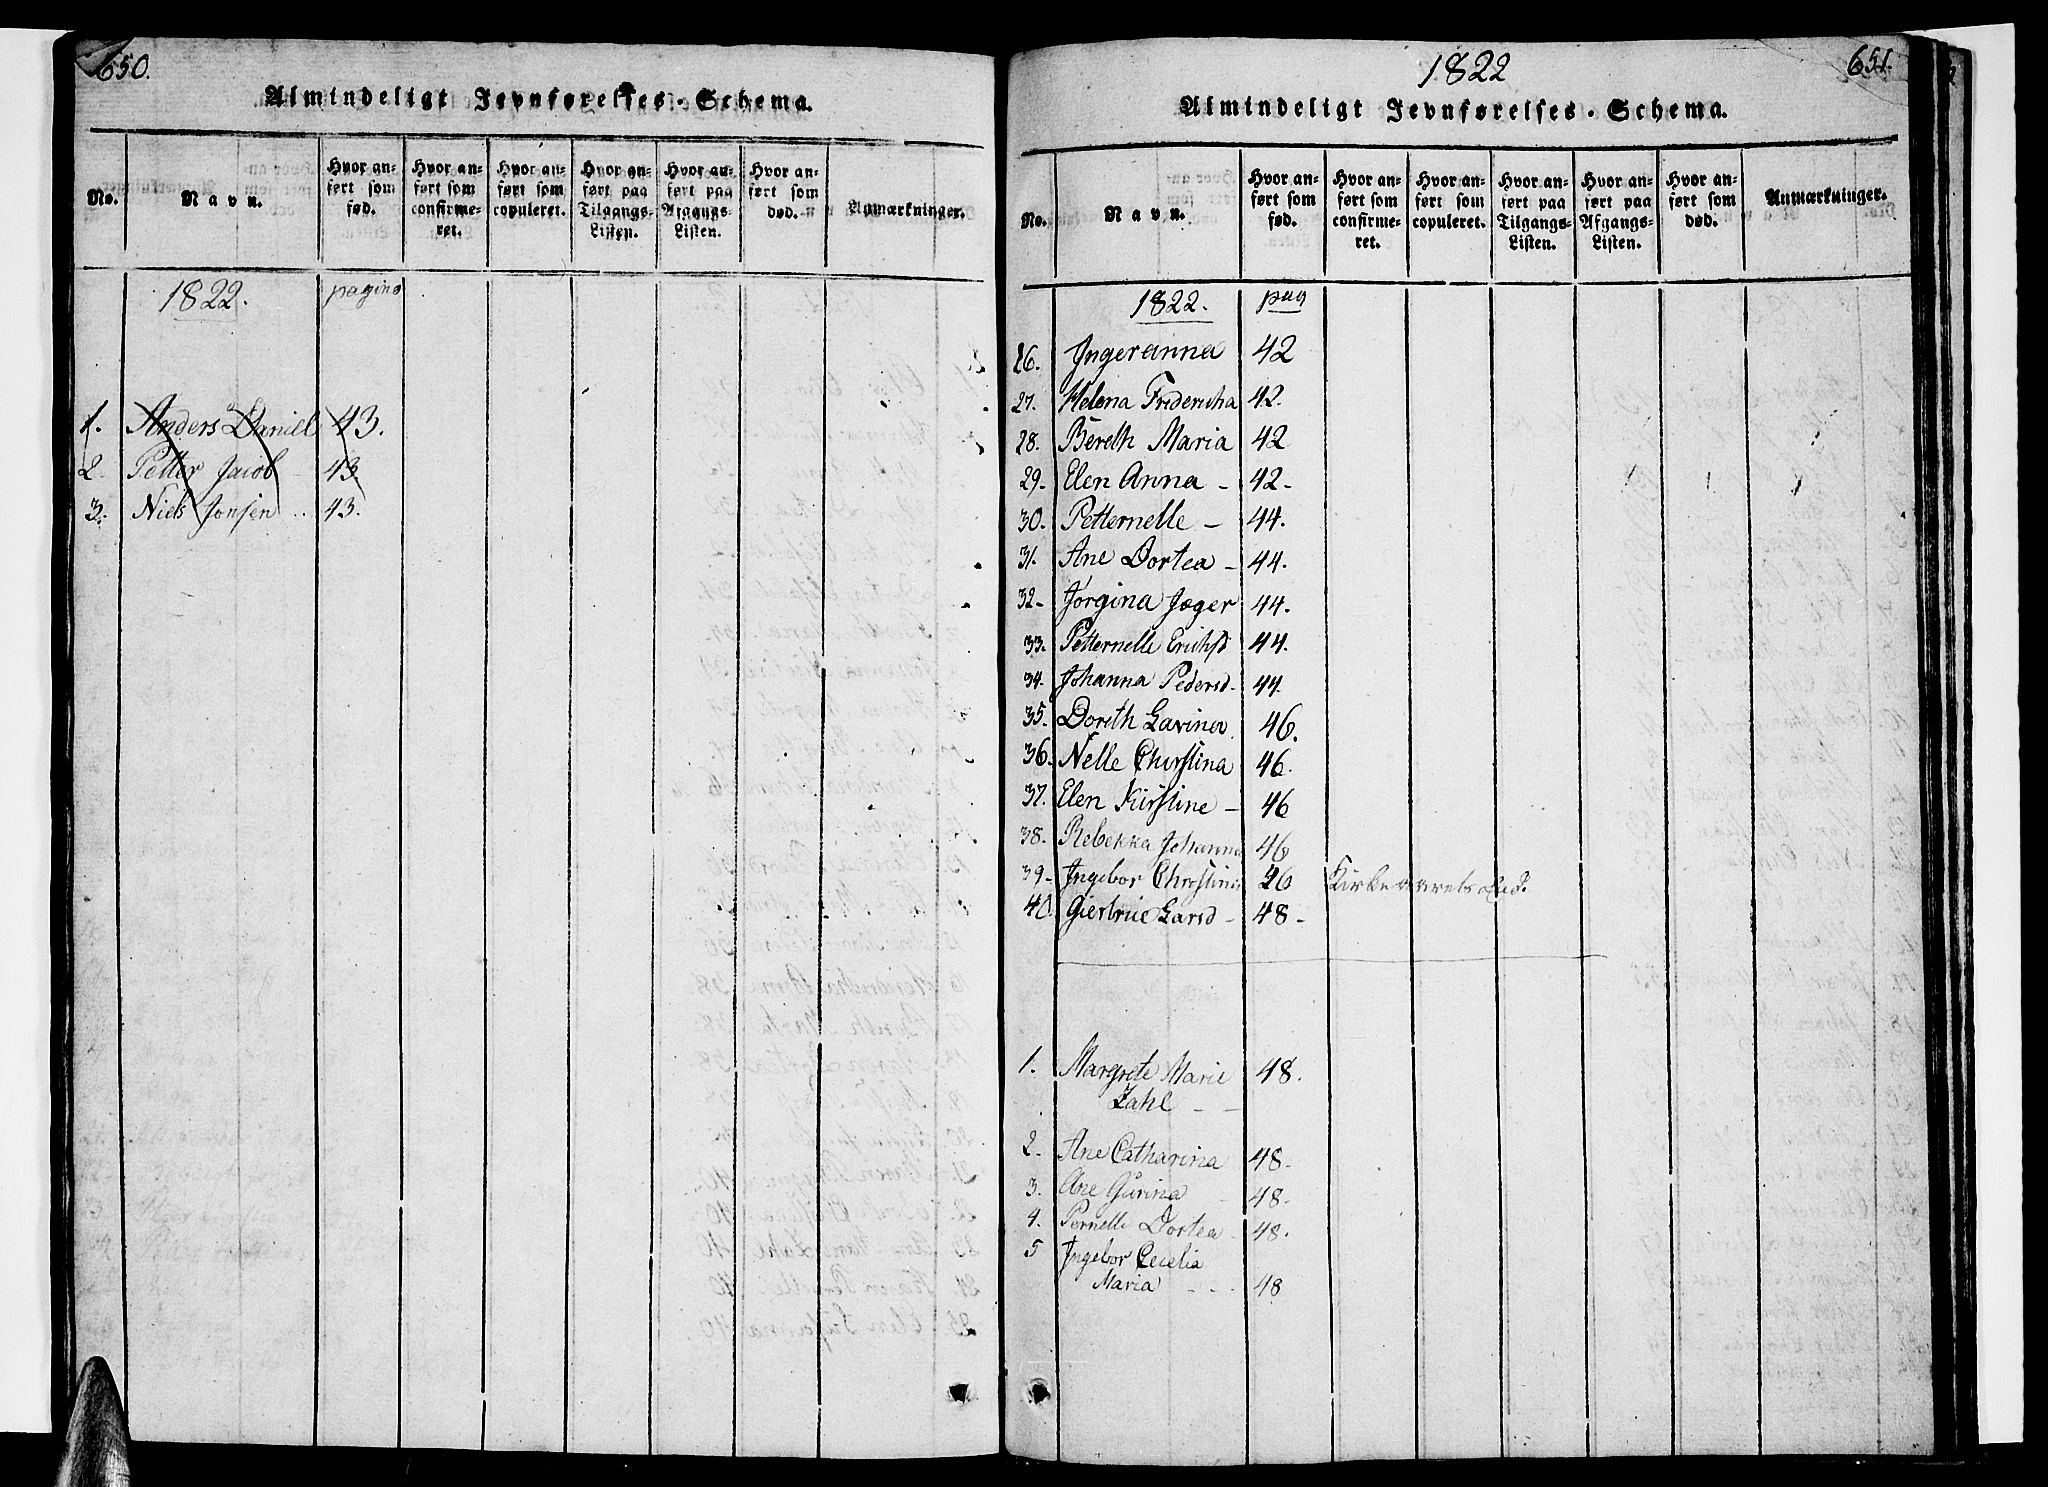 650.
Almindeligt Jevnførelses-Schema.
No.
Navn.
Hvor anført som fød.
Hvor anført som confirmeret.
Hvor anført som copuleret.
Hvor anført paa Tilgangs-Listen.
Hvor anført paa Afgangs-Listen.
Hvor anført som død.
Anmærkninger.
1822. pagina
1. Anders Daniel 43.
2. Petter Jacob 43.
3. Niels Jonsen .. 43.
1822
651.
Almindeligt Jevnførelses-Schema.
No.
Navn.
Hvor anført som fød.
Hvor anført som confirmeret.
Hvor anført som copuleret.
Hvor anført paa Tilgangs-Listen.
Hvor anført paa Afgangs-Listen.
Hvor anført som død.
Anmærkninger.
1822. pag
26. Jngeranna 42
27. Helena Fridericha 42.
28. Bereth Maria 42
29. Elen Anna - 42-
30. Petternelle - 44.
31. Ane Dortea - 44.
32- Jørgina Jæger 44.
33. Petternelle Erichsd 44.
34. Johanna Pedersd- 44.
35. Doreth Lavina 46.
36. Nelle Chirstina 46.
37. Elen Kirstine - 46
38. Rebekka Johanna 46
39- Jngebor Christina 26
40. Giertrue Larsd - 48-
1. Margrete Marie 48.
Zahl - -
2. Ane Catharina 48-
3. Ane Gurina - 48-
4. Pernelle Dortea - 48.
5 Jngebor Cecelia
Maria - - - 48